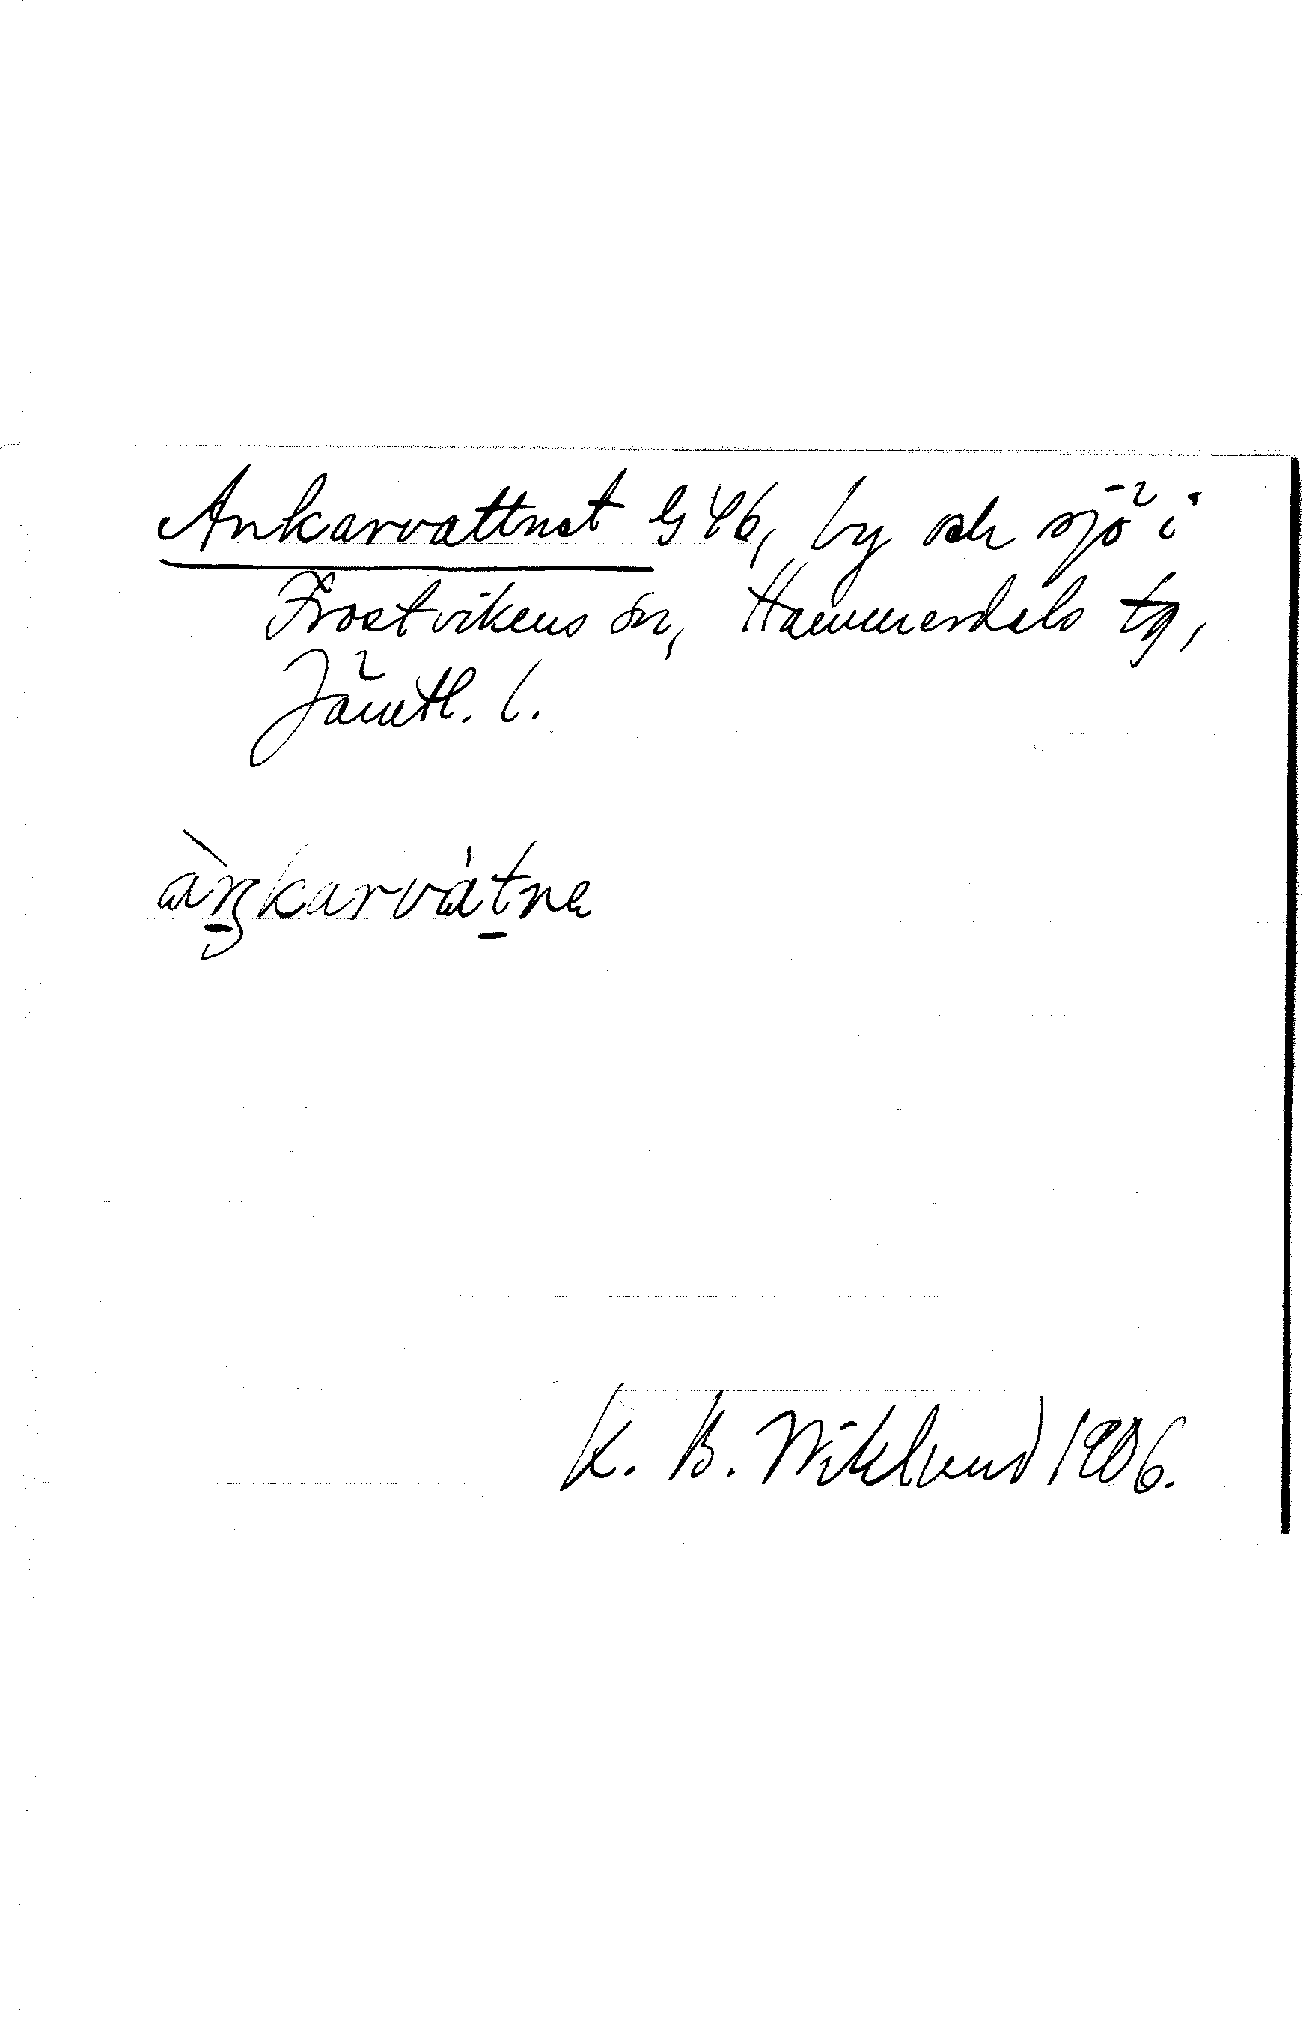 Ankarvattnet G 46, by och sjö i
Frostvikens sn, Hammerdals tg,
Jämtl. l.
àŋkarvátna
K. B. Wiklund 1906.